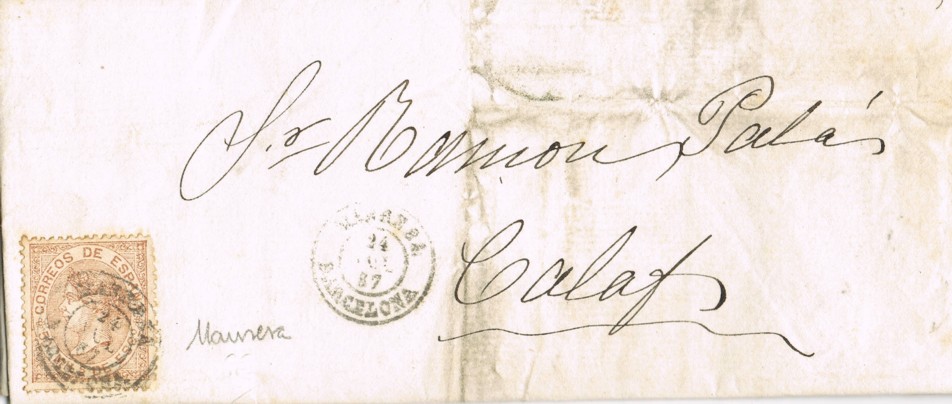 Sr Ramon Palá
Calaf
MANRESA
24
67
BARCELONA
Manresa
CORREOS DE ESPAÑA